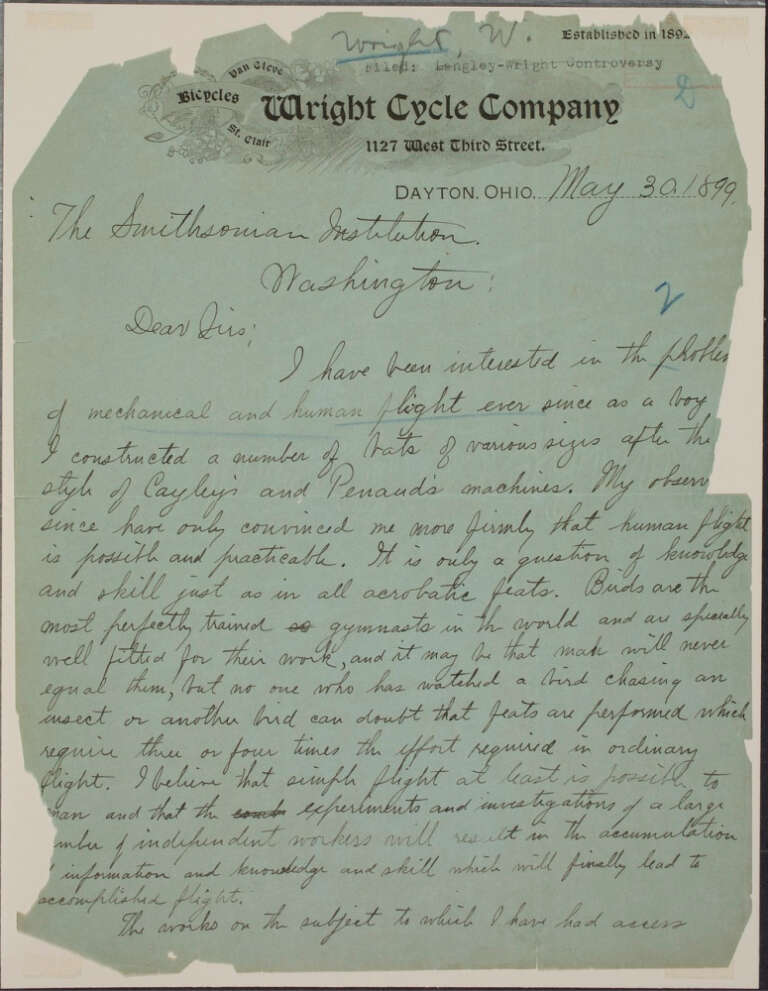 Wright, W.
Established in 189
Filed: Langley-Wright Controversy
Van Cleve
Bicycles
St. Clair
Wright Cycle Company
1127 West Third Street.
DAYTON, OHIO, May 30 1899.
The Smithsonian Institution.
Washington:
Dear Sirs;
2
I have been interested in the problem
of mechanical and human flight ever since as a boy
I constructed a number of bats of various sizes after the
style of Cayley's and Penaud's machines. My observ
since have only convinced me more firmly that human flight
is possible and practicable. It is only a question of knowledge
and skill just as in all acrobatic feats. Birds are the
most perfectly trained gymnasts in the world and are specially
well fitted for their work, and it may be that man will never
equal them, but no one who has watched a bird chasing an
insect or another bird can doubt that feats are performed which
require three or four times the effort required in ordinary
flight. I believe that simple flight at least is possible to
man and that the experiments and investigations of a large
mber of independent workers will result in the accumulation
information and knowledge and skill which will finally lead to
accomplished flight.
The works on the subject to which I have had access